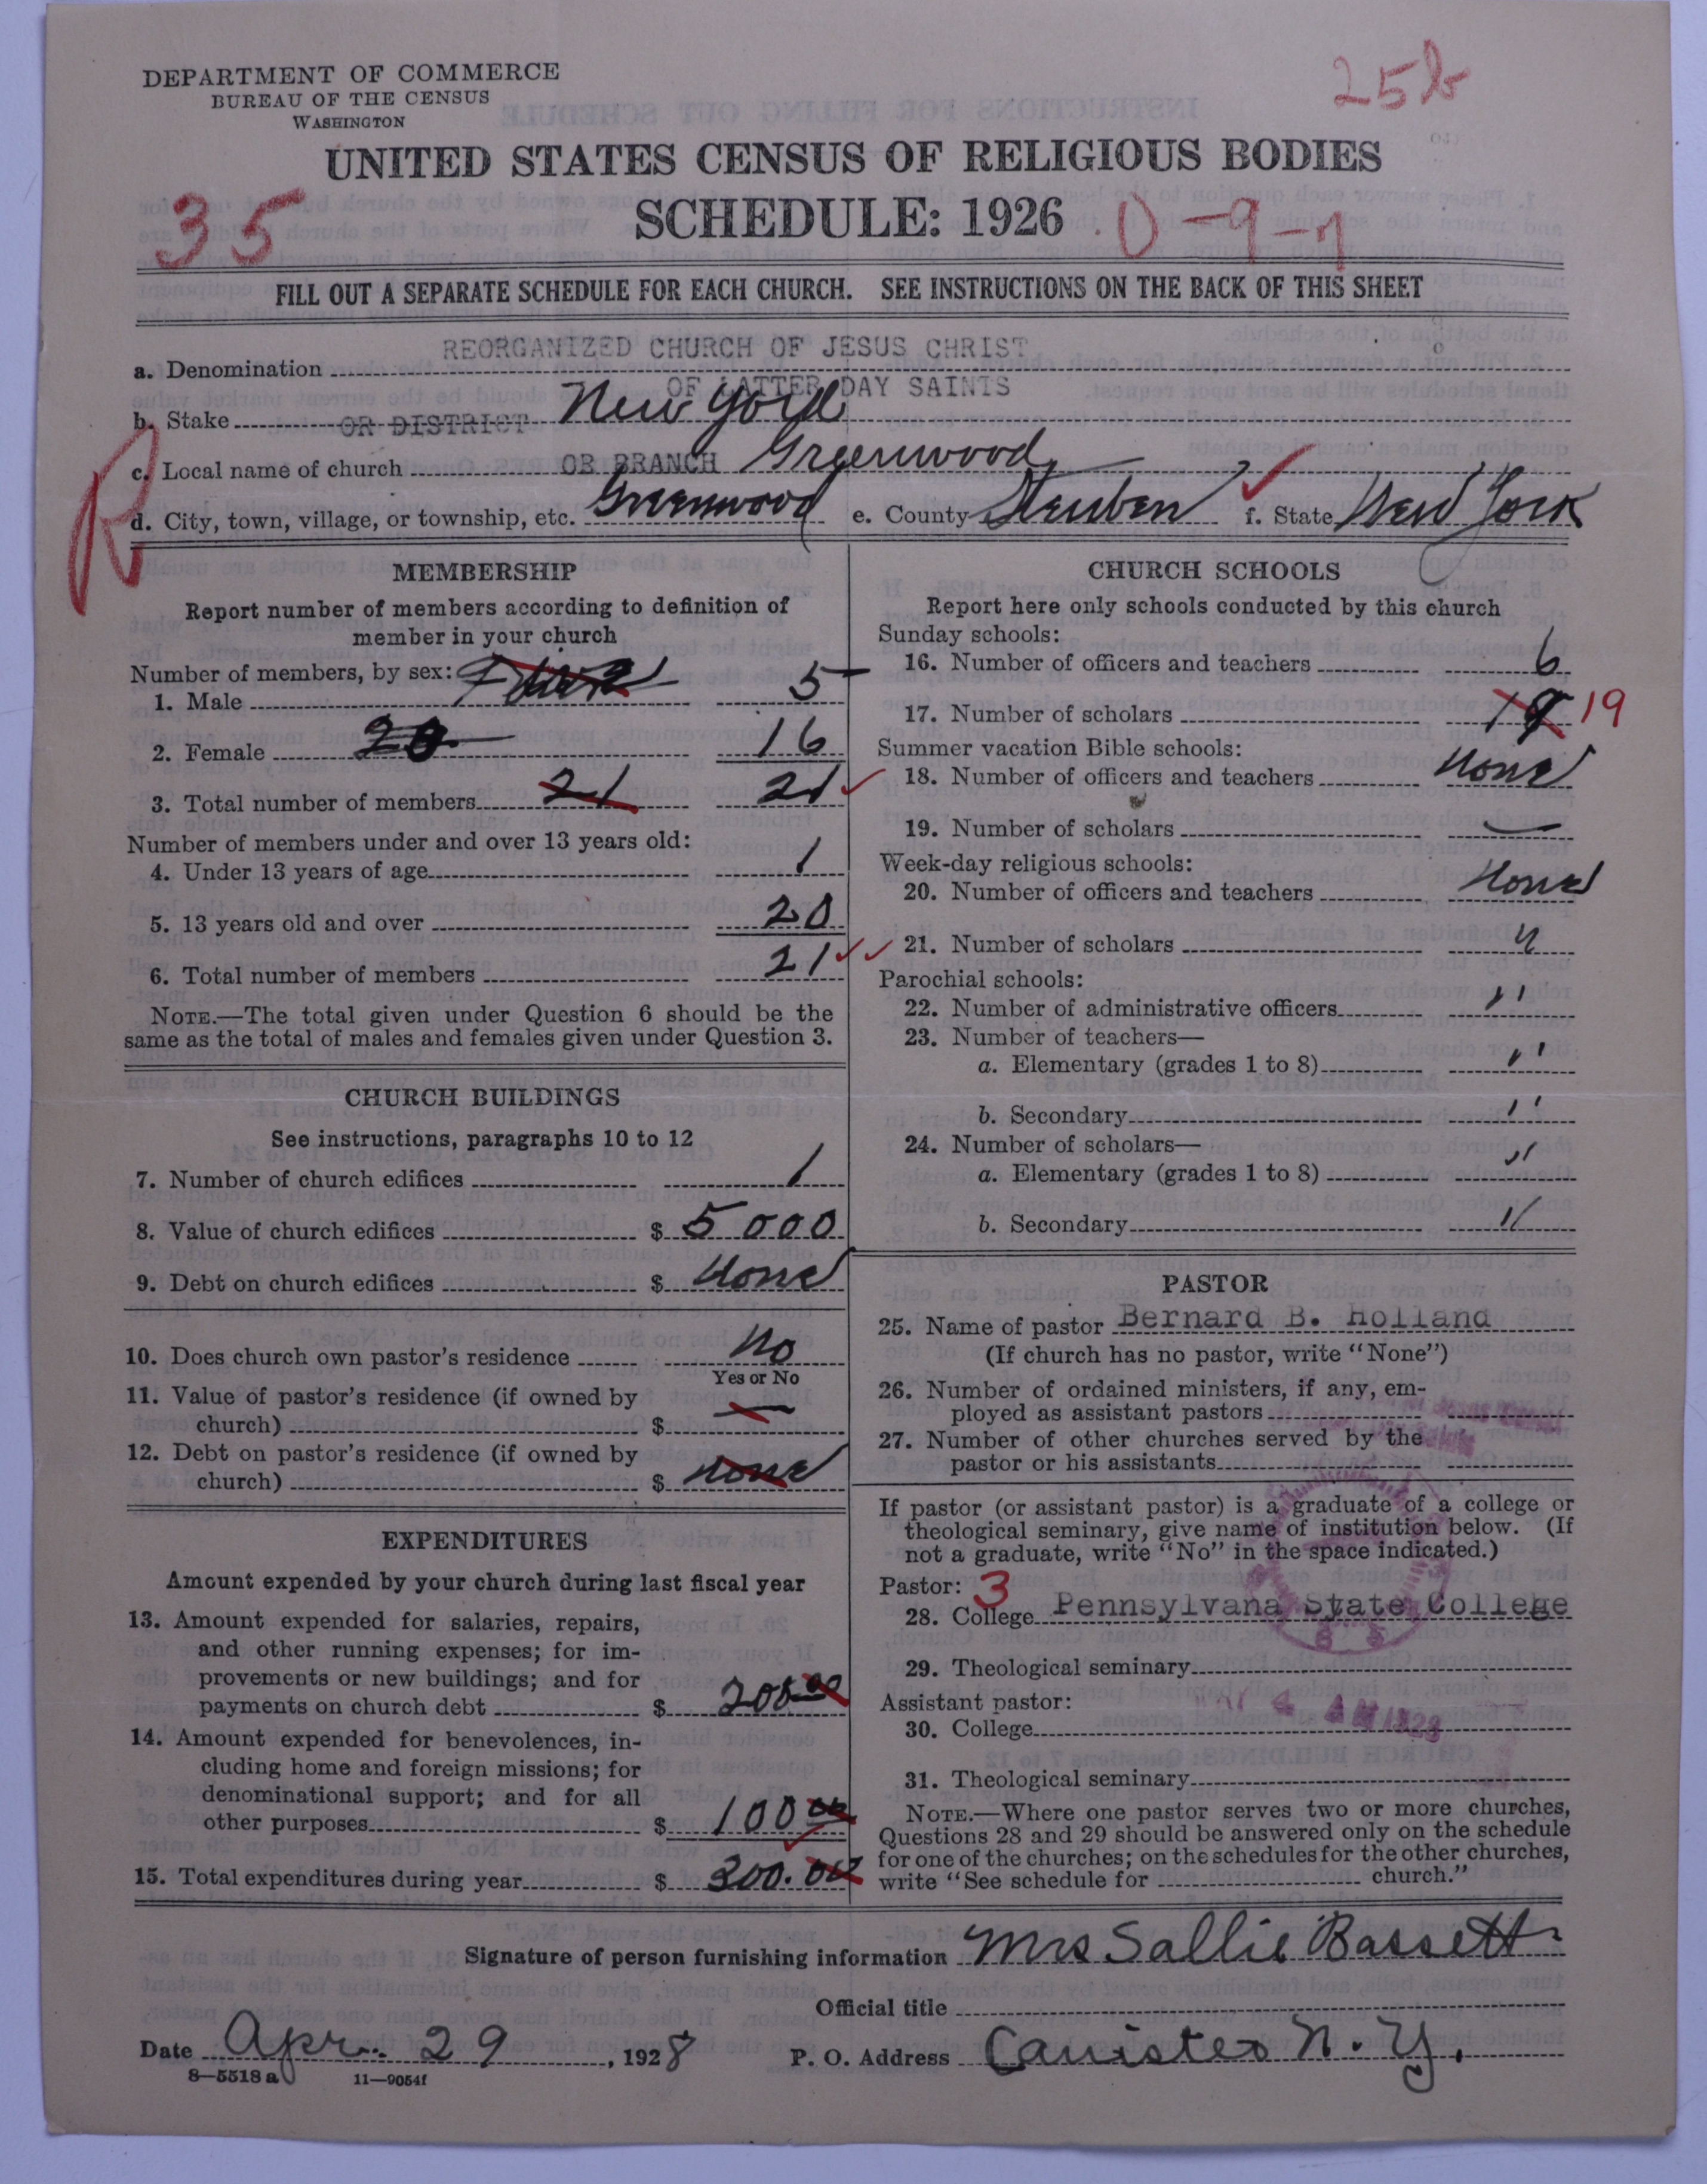 DEPARTMENT OF COMMERCE
BUREAU OF THE CENSUS
WASHINGTON
25b
UNITED STATES CENSUS OF RELIGIOUS BODIES
35
SCHEDULE: 1926
0-9-7
FILL OUT A SEPARATE SCHEDULE FOR EACH CHURCH. SEE INSTRUCTIONS ON THE BACK OF THIS SHEET
a. Denomination REORGANIZED CHURCH OF JESUS CHRIST
OF LATTER DAY SAINTS
b. Stake OR DISTRICT New York
c. Local name of church OR BRANCH Greenwood
R
d. City, town, village, or township, etc. Greenwood e. County Steuben f. State New York
MEMBERSHIP
Report number of members according to definition of
member in your church
Number of members, by sex:
1. Male 5
2. Female 20 16
3. Total number of members 21 21
Number of members under and over 13 years old:
4. Under 13 years of age 1
5. 13 years old and over 20
6. Total number of members 21
NOTE.—The total given under Question 6 should be the
same as the total of males and females given under Question 3.
CHURCH BUILDINGS
See instructions, paragraphs 10 to 12
7. Number of church edifices 1
8. Value of church edifices $ 5000
9. Debt on church edifices $ None
10. Does church own pastor's residence No
Yes or No
11. Value of pastor's residence (if owned by
church) $ —
12. Debt on pastor's residence (if owned by
church) $ None
EXPENDITURES
Amount expended by your church during last fiscal year
13. Amount expended for salaries, repairs,
and other running expenses; for im-
provements or new buildings; and for
payments on church debt $ 200.00
14. Amount expended for benevolences, in-
cluding home and foreign missions; for
denominational support; and for all
other purposes $ 100.00
15. Total expenditures during year $ 300.00
CHURCH SCHOOLS
Report here only schools conducted by this church
Sunday schools:
16. Number of officers and teachers 6
17. Number of scholars 19 19
Summer vacation Bible schools:
18. Number of officers and teachers None
19. Number of scholars —
Week-day religious schools:
20. Number of officers and teachers None
21. Number of scholars "
Parochial schools:
22. Number of administrative officers "
23. Number of teachers—
a. Elementary (grades 1 to 8) "
b. Secondary "
24. Number of scholars—
a. Elementary (grades 1 to 8) "
b. Secondary "
PASTOR
25. Name of pastor Bernard B. Holland
(If church has no pastor, write "None")
26. Number of ordained ministers, if any, em-
ployed as assistant pastors
27. Number of other churches served by the
pastor or his assistants
If pastor (or assistant pastor) is a graduate of a college or
theological seminary, give name of institution below. (If
not a graduate, write "No" in the space indicated.)
Pastor: 3
28. College Pennsylvana State College
29. Theological seminary
Assistant pastor:
30. College
31. Theological seminary
NOTE.—Where one pastor serves two or more churches,
Questions 28 and 29 should be answered only on the schedule
for one of the churches; on the schedules for the other churches,
write "See schedule for church."
Signature of person furnishing information Mrs Sallie Bassett
Official title
Date Apr. 29, 1928 P. O. Address Canisteo N. Y.
8—5518 a 11—9054f